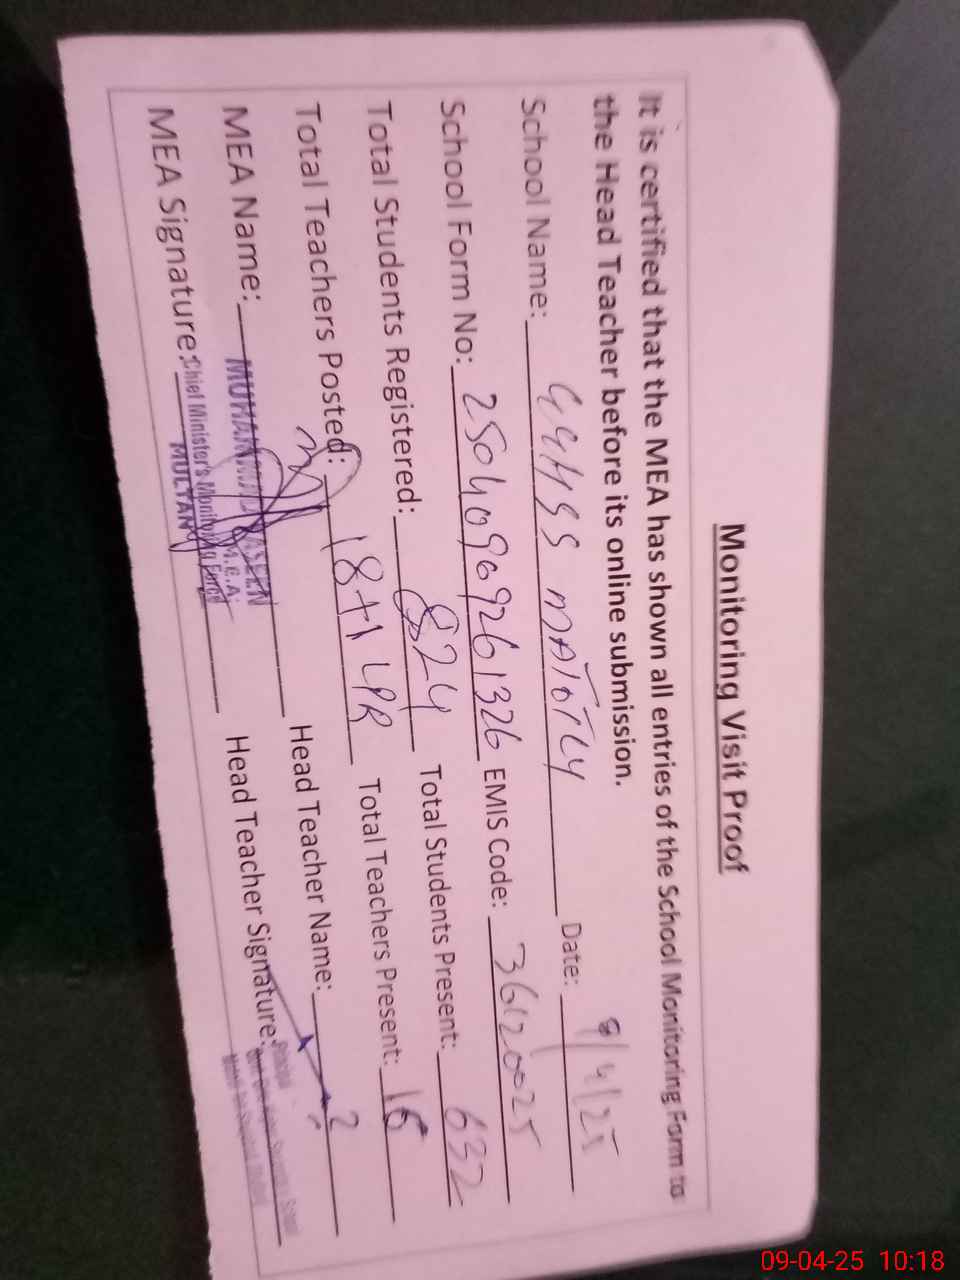 Monitoring Visit Proof
It is certified that the MEA has shown all entries of the School Monitoring Form to
the Head Teacher before its online submission.
School Name: GGHSS MATOTLY Date: 9/4/25
School Form No: 25040909261326 EMIS Code: 36120025
Total Students Registered: 824 Total Students Present: 632
Total Teachers Posted: 18+1 LPR Total Teachers Present: 16
MEA Name: MUHAMMAD YASEEN Head Teacher Name:
M.E.A.
MEA Signature: Chief Minister's Monitoring Force Head Teacher Signature:
MULTAN
Principal
09-04-25 10:18